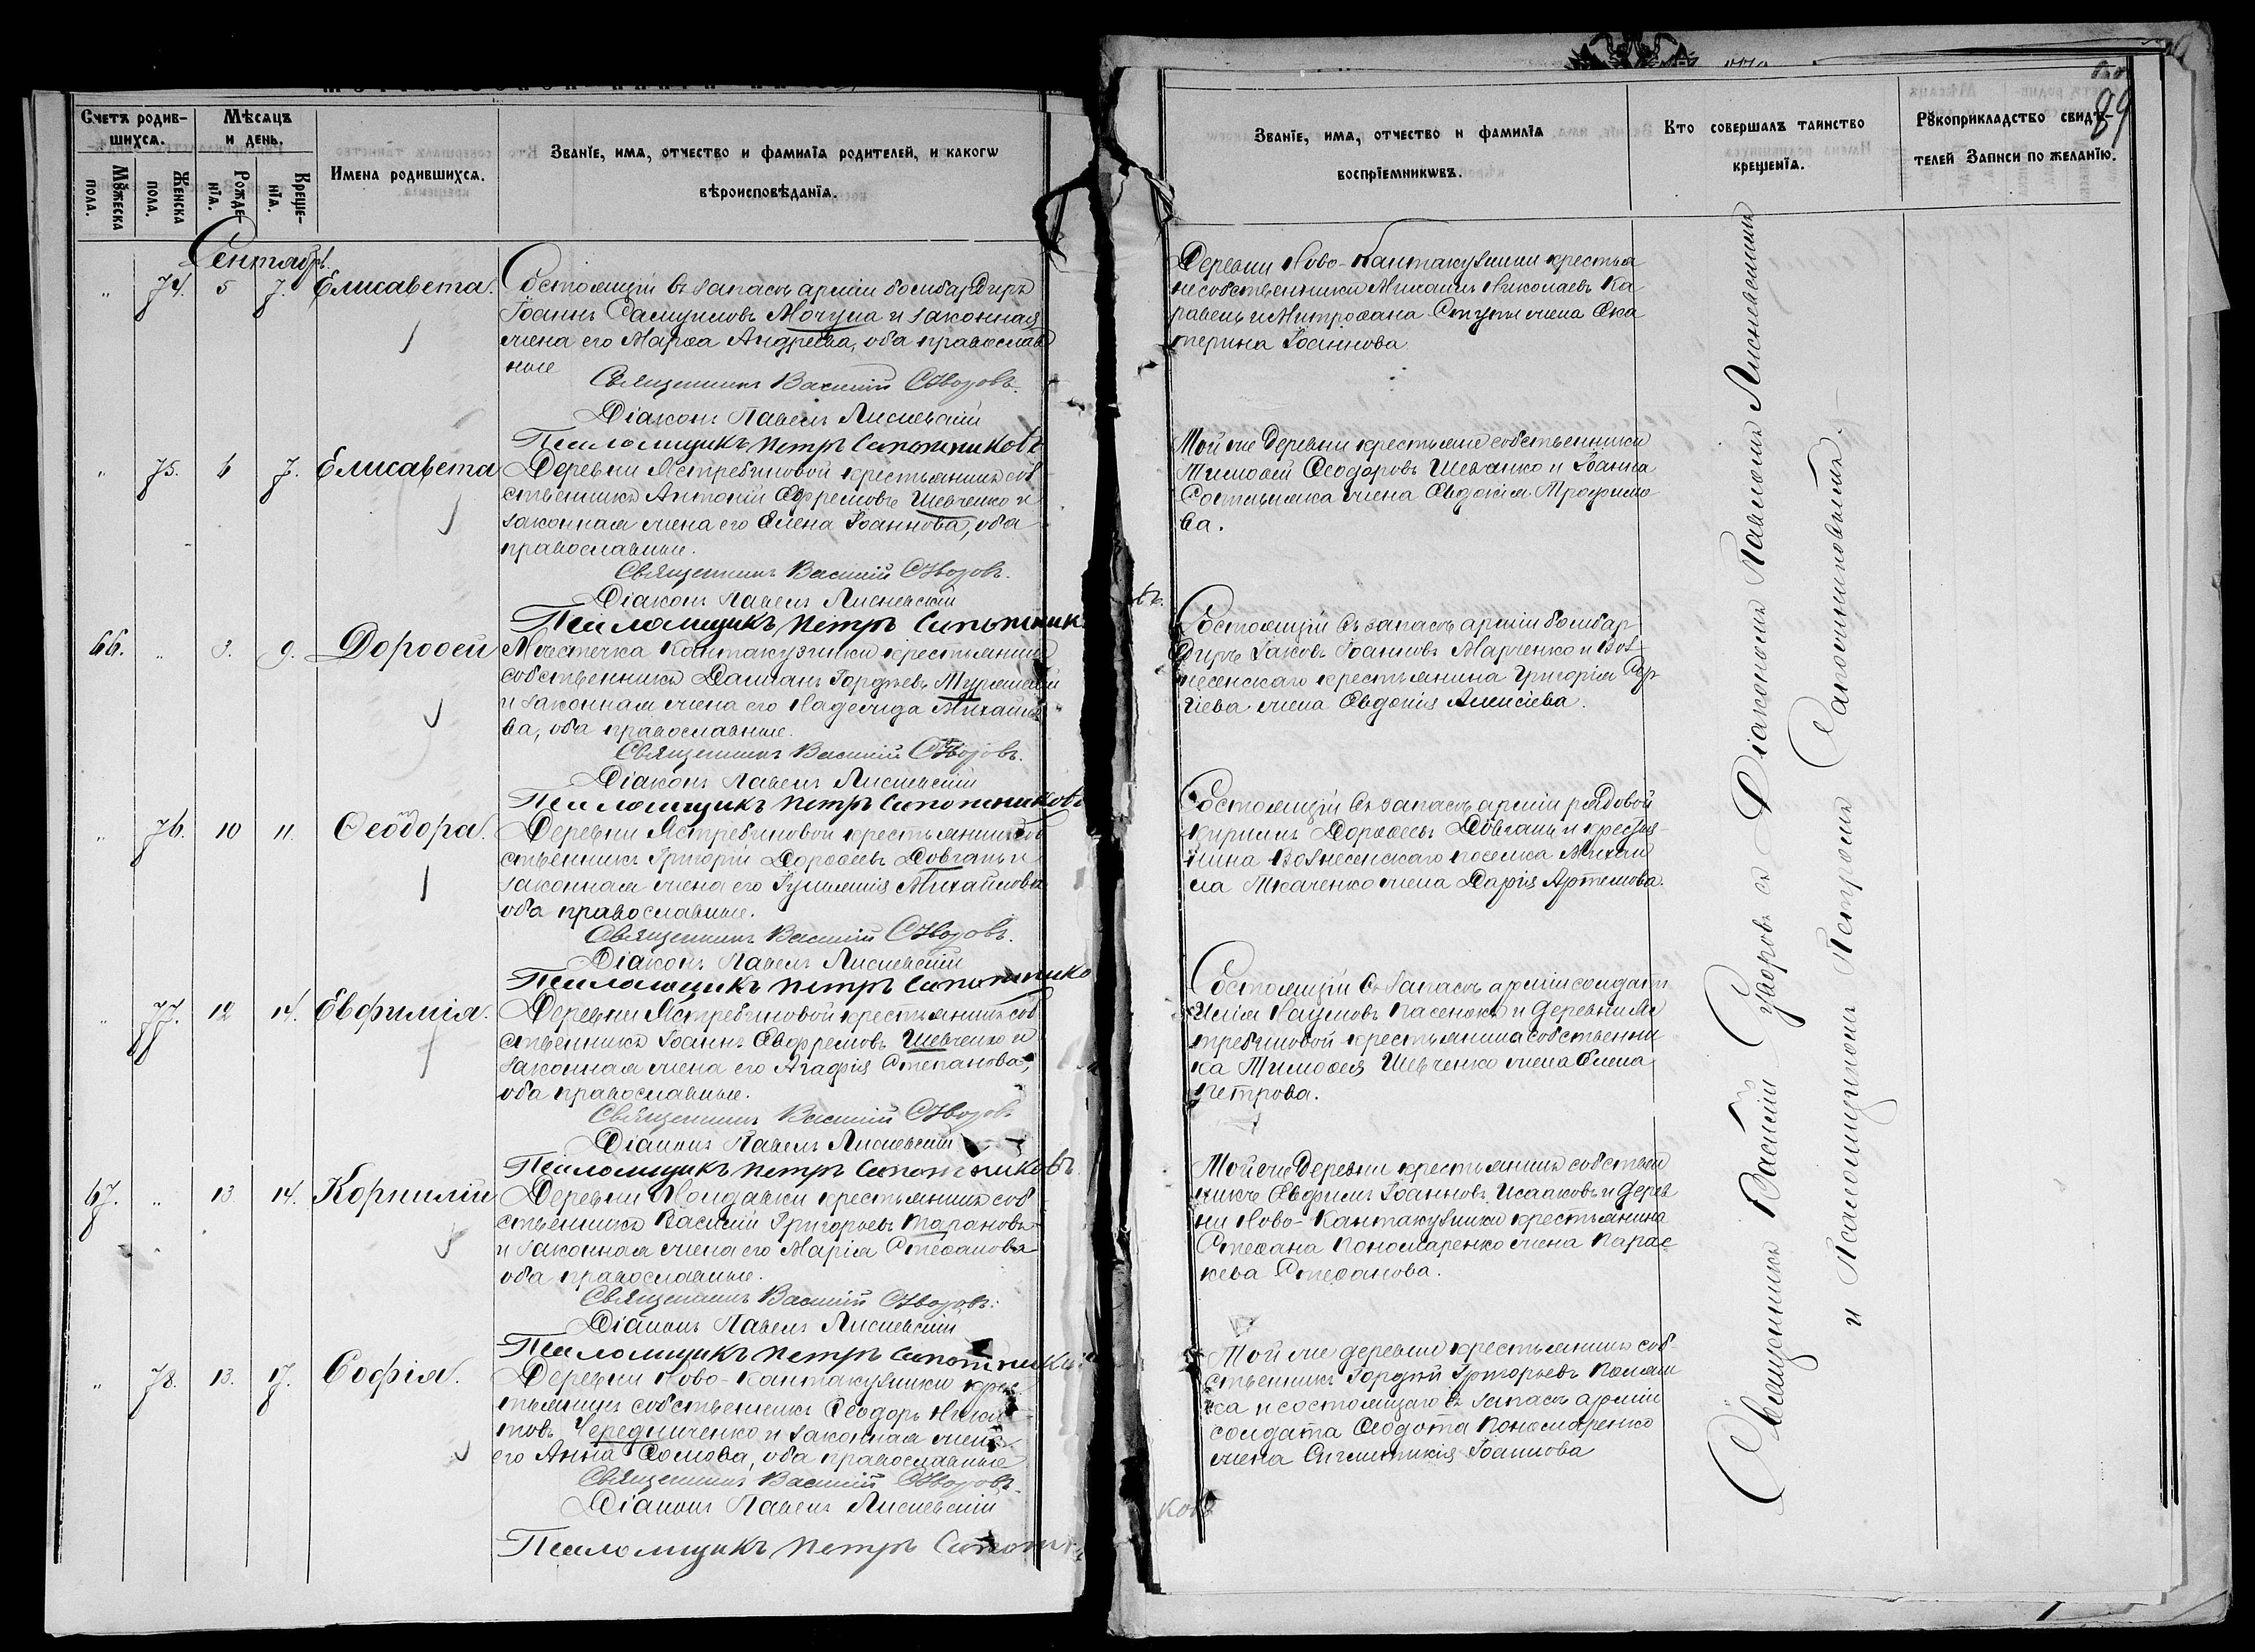 Счетъ родив-
шихсѧ.
Мѣсяцъ
и день.
Мꙋжеска
пола.
Женска
пола.
Рожде-
нїѧ.
Креще-
нїѧ.
Имена родившихсѧ.
Званїе, имѧ, отчество и фамилїѧ родителей, и какогѡ
вѣроисповѣданїѧ.
Сентябрь
" 74. 5 7. Елисавета.
Состоящій въ запасѣ арміи бомбардиръ
Іоаннъ Самуиловъ Мочула и законная
жена его Марѳа Андреева, оба православ
ные
Священникъ Василій Суворовъ.
Діаконъ Павелъ Лисневскій
Псаломщикъ Петръ Сапожниковъ
" 75. 6 7. Елисавета
Деревни Ястребиновой крестьянинъ соб
ственникъ Антоній Ефремовъ Шевченко и
законная жена его Елена Іоаннова, оба
православные.
Священникъ Василій Суворовъ.
Діаконъ Павелъ Лисневскій
Псаломщикъ Петръ Сапожник
66. " 3. 9. Дороѳей
Мѣстечка Кантакузинки крестьянинъ
собственникъ Даміанъ Гордѣевъ
и законная жена его Надежда Михайло
ва, оба православные.
Священникъ Василій Суворовъ.
Діаконъ Павелъ Лисневскій
Псаломщикъ Петръ Сапожниковъ
" 76. 10 11. Ѳеодора.
Деревни Ястребиновой крестьянинъ соб
ственникъ Григорій Дороѳеевъ Довгань и
законная жена его Іуліанія Михайлова
оба православные.
Священникъ Василій Суворовъ.
Діаконъ Павелъ Лисневскій
Псаломщикъ Петръ Сапожнико
" 77. 12 14. Евфимія.
Деревни Ястребиновой крестьянинъ соб
ственникъ Іоаннъ Евфремовъ Шевченко и
законная жена его Агафія Степанова,
оба православные.
Священникъ Василій Суворовъ
Діаконъ Павелъ Лисневскій
Псаломщикъ Петръ Сапожниковъ.
67. " 13. 14. Корнилій
Деревни крестьянинъ соб
ственникъ Василій Григорьевъ Тарановъ
и законная жена его Марія Стефанова
оба православные.
Священникъ Василій Суворовъ.
Діаконъ Павелъ Лисневскій
Псаломщикъ Петръ Сапожников
" 78. 13. 17. Софія.
Деревни Ново-Кантакузинки крес
тьянинъ собственникъ Ѳеодоръ Ники
товъ Чередниченко и законная жена
его Анна Ѳомова, оба православные
Священникъ Василій Суворовъ.
Діаконъ Павелъ Лисневскій
Псаломщикъ Петръ Сапожн
89
Званїе, имѧ, отчество и фамилїѧ
воспрїемникѡвъ.
Кто совершалъ таинство
крещенїѧ.
Рꙋкоприкладство свидѣ-
телей записи по желанїю.
Деревни Ново-Кантакузинки крестья
не собственники Михаилъ Николаевъ Ка
равецъ и Митрофана жена Ека
терина Іоаннова.
Той же деревни крестьяне собственники
Тимоѳей Ѳеодоровъ Шевченко и Іоанна
жена Евдокія Трофимо
ва.
Состоящій въ запасѣ арміи бомбар
диръ Іаковъ Іоанновъ Марченко и Воз
несенскаго крестьянина Григорія
жена Евдокія Алексіева.
Состоящій въ запасѣ арміи рядовой
Кириллъ Дороѳеевъ Довгань и крестья-
нина Вознесенскаго поселка Михаи
ла Ткаченко жена Дарія Артемова.
Состоящій въ запасѣ арміи солдатъ
Илія Наумовъ Пасенокъ и деревни Яс
требиновой крестьянина собственни
ка Тимоѳея Шевченко жена Елена
Петрова.
Той же деревни крестьянинъ собствен
никъ Евфимъ Іоанновъ Исааковъ и дерев
ни Ново-Кантакузинки крестьянина
Стефана Пономаренко жена Парас-
кева Стефанова.
Той же деревни крестьянинъ соб-
ственникъ Гордій Григорьевъ
и состоящаго въ запасѣ арміи
солдата Ѳеодота Пономаренко
жена Сигклитикія Іоаннова
Священникъ Василій Суворовъ съ Діакономъ Павломъ Лисневскимъ
и Псаломщикомъ Петромъ Сапожниковымъ.